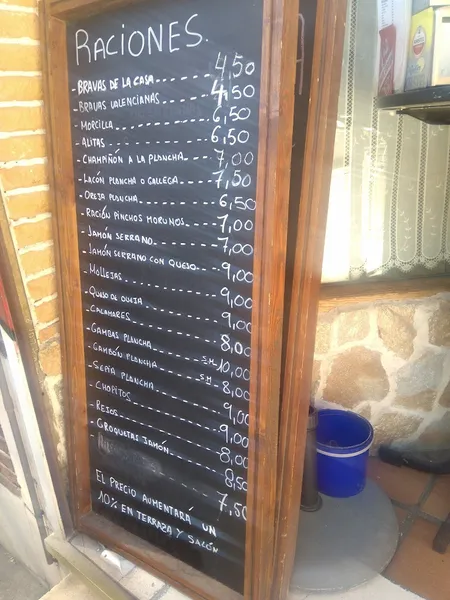 RACIONES.
- BRAVAS DE LA CASA ---- 4,50
- BRAVAS VALENCIANAS ---- 4,50
- MORCILLA ---- 6,50
- ALITAS ---- 6,50
- CHAMPIÑÓN A LA PLANCHA ---- 7,00
- LACÓN PLANCHA O GALLEGA ---- 7,50
- OREJA PLANCHA ---- 6,50
- RACIÓN PINCHOS MORUNOS ---- 7,00
- JAMÓN SERRANO ---- 7,00
- JAMÓN SERRANO CON QUESO ---- 9,00
- MOLLEJAS ---- 9,00
- QUESO DE OVEJA ---- 9,00
- CALAMARES ---- 8,00
- GAMBAS PLANCHA ---- S.M. 10,00
- GAMBÓN PLANCHA ---- S.M. 8,00
- SEPIA PLANCHA ---- 9,00
- CHOPITOS ---- 9,00
- REJOS ---- 8,00
- CROQUETAS JAMÓN ---- 8,50
7,50
EL PRECIO AUMENTARÁ UN
10% EN TERRAZA Y SALÓN